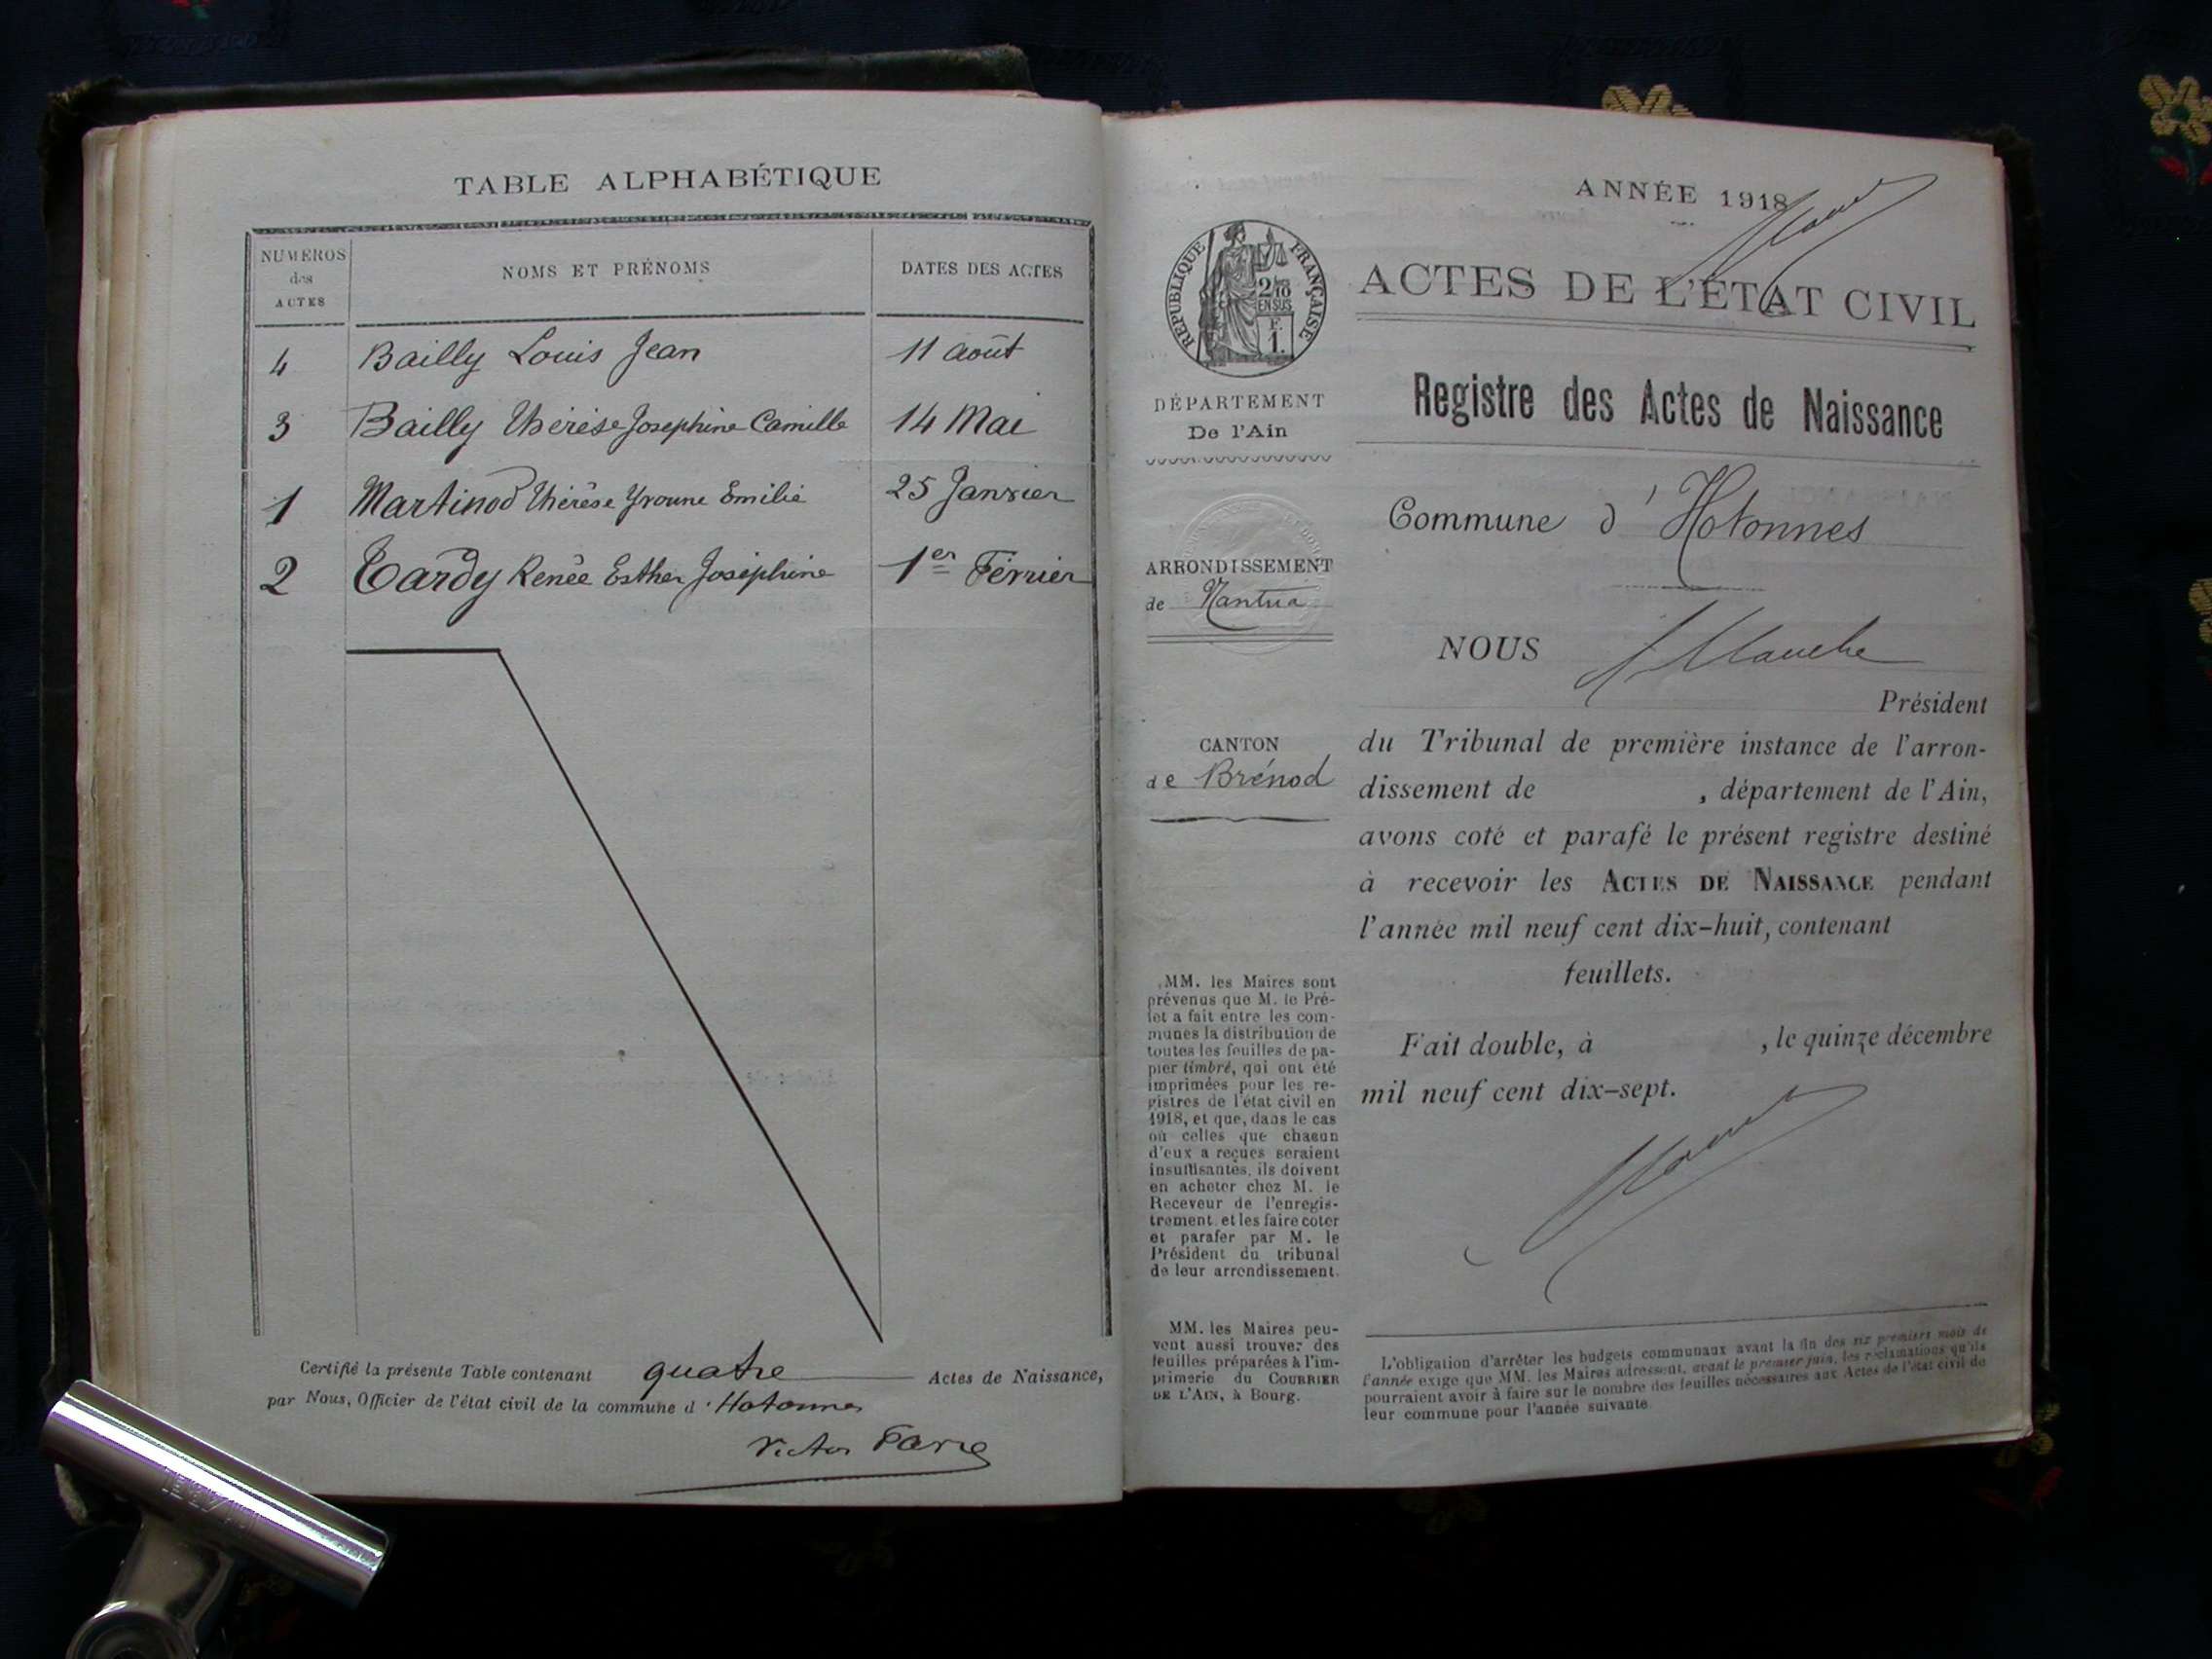 TABLE ALPHABÉTIQUE
NUMÉROS des ACTES NOMS ET PRÉNOMS DATES DES ACTES
4 Bailly Louis Jean 11 août
3 Bailly Thérèse Joséphine Camille 14 Mai
1 Martinod Thérèse Yvonne Emilie 25 Janvier
2 Tardy Renée Esther Joséphine 1er Février
Certifié la présente Table contenant quatre Actes de Naissance,
par Nous, Officier de l'état civil de la commune d'Hotonnes
Victor
ANNÉE 1918
RÉPUBLIQUE FRANÇAISE
2/10 EN SUS
F. 1.
DÉPARTEMENT
De l'Ain
ARRONDISSEMENT
de Nantua
CANTON
de Brénod
MM. les Maires sont
prévenus que M. le Pré-
fet a fait entre les com-
munes la distribution de
toutes les feuilles de pa-
pier timbré, qui ont été
imprimées pour les re-
gistres de l'état civil en
1918, et que, dans le cas
où celles que chacun
d'eux a reçues seraient
insuffisantes, ils doivent
en acheter chez M. le
Receveur de l'enregis-
trement et les faire coter
et parafer par M. le
Président du tribunal
de leur arrondissement.
MM. les Maires peu-
vent aussi trouver des
feuilles préparées à l'im-
primerie du COURRIER
DE L'AIN, à Bourg.
ACTES DE L'ÉTAT CIVIL
Registre des Actes de Naissance
Commune d'Hotonnes
NOUS
Président
du Tribunal de première instance de l'arron-
dissement de , département de l'Ain,
avons coté et parafé le présent registre destiné
à recevoir les ACTES DE NAISSANCE pendant
l'année mil neuf cent dix-huit, contenant
feuillets.
Fait double, à , le quinze décembre
mil neuf cent dix-sept.
L'obligation d'arrêter les budgets communaux avant la fin des six premiers mois de
l'année exige que MM. les Maires adressent, avant le premier juin, les réclamations qu'ils
pourraient avoir à faire sur le nombre des feuilles nécessaires aux Actes de l'état civil de
leur commune pour l'année suivante.